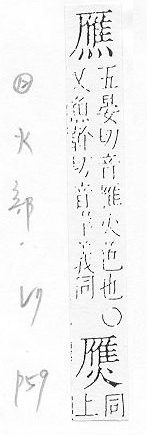 五晏切音雁火色也〇
又魚幹切音岸義同
同
上
火部. 47 p59